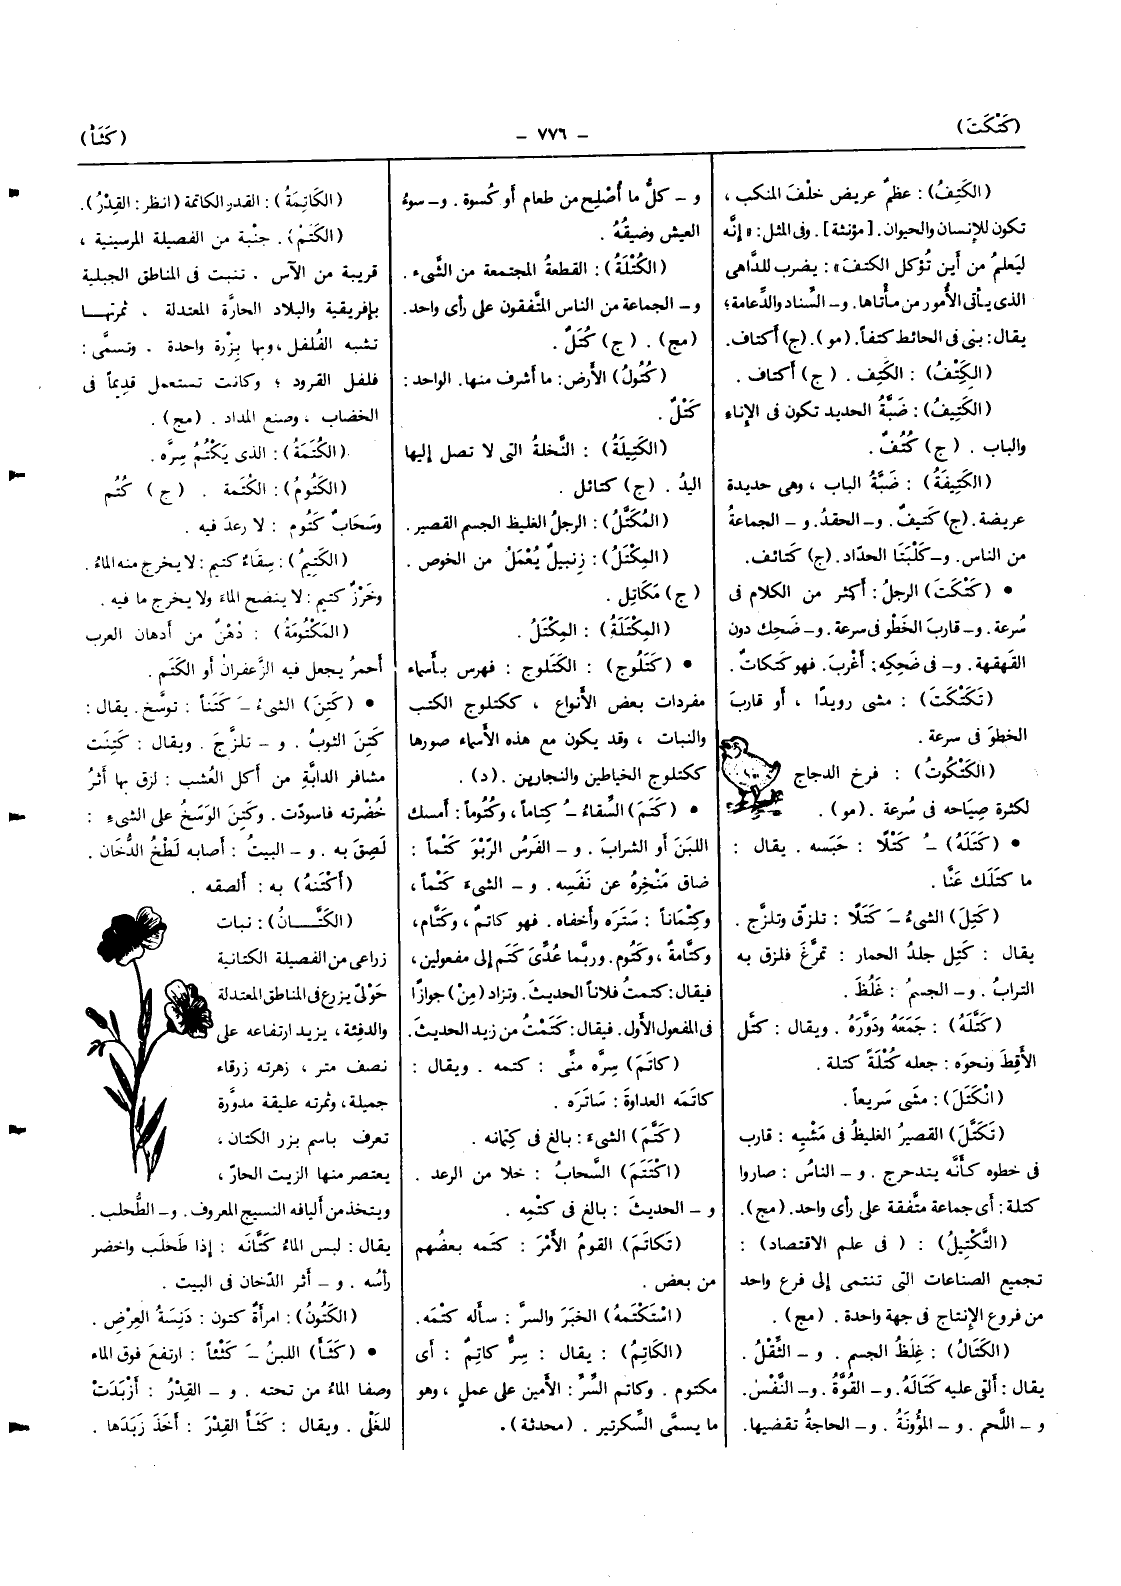 (كَتْكَتَ)
– ٧٧٦ –
(كَثَأَ)
(الكَتِفُ) : عظمٌ عريض خلْفَ المنكب ،
تكون للإنسان والحيوان . [مؤنثة] . وفى المثل : « إنَّه
ليَعلمُ من أين تُؤكل الكتف » : يضرب للدَّاهى
الذى يأتى الأُمور من مأْتاها . و– السِّناد والدِّعامة ؛
يقال : بنى فى الحائط كتفاً . (مو) . (ج) أكتاف .
(الكِتْفُ) : الكَتِف . (ج) أكتاف .
(الكَتِيفُ) : ضَبَّةُ الحديد تكون فى الإناء
والباب . (ج) كُتُفٌ .
(الكَتِيفَةُ) : ضَبَّةُ الباب ، وهى حديدة
عريضة . (ج) كَتيفٌ . و– الحقدُ . و – الجماعةُ
من الناس . و– كَلْبَتَا الحدّاد . (ج) كَتَائف .
• (كَتْكَتَ) الرجلُ : أكثر من الكلام فى
سُرعة . و– قاربَ الخَطْو فى سرعة . و– ضَحِك دون
القهقهة . و– فى ضَحِكِه : أغْربَ . فهو كَتكاتٌ .
(تَكَتْكَتَ) : مشى رويدًا ، أو قاربَ
الخطوَ فى سرعة .
(الكَتْكُوتُ) : فرخ الدجاج
لكثرة صِيَاحه فى سُرعة . (مو) .
• (كَتَلَهُ) –ُ كَتْلًا : حَبَسه . يقال :
ما كتَلَك عَنَّا .
(كَتِلَ) الشىءُ –َ كَتَلًا : تلزّق وتلزَّج .
يقال : كَتِل جلدُ الحمار : تمرَّغَ فلزق به
الترابُ . و– الجسمُ : غَلُظَ .
(كَتَّلَهُ) : جَمَعَهُ ودَوَّرَهُ . ويقال : كتَّل
الأَقِطَ ونحوَه : جعله كُتْلَةً كتلة .
(انْكَتَلَ) : مشَى سَريعاً .
(تَكَتَّلَ) القصيرُ الغليظُ فى مَشْيِه : قارب
فى خطوه كـأنَّه يتدحرج . و – الناسُ : صاروا
كتلة : أى جماعة متَّفقة على رأى واحد . (مج) .
(التَّكْتِيلُ) : ( فى علم الاقتصاد) :
تجميع الصناعات التى تنتمى إلى فرع واحد
من فروع الإنتاج فى جهة واحدة . (مج) .
(الكَتَالُ) : غِلظُ الجسم . و – الثِّقْلُ .
يقال : ألقى عليه كَتَالَهُ . و– القُوَّةُ . و– النَّفْسُ .
و – اللَّحم . و – المؤُونَةُ . و– الحاجةُ تقضيها .
و – كلُّ ما أُصْلِح من طعام أو كُسوة . و– سوءُ
العيش وضيقُهُ .
(الكُتْلَةُ) : القطعةُ المجتمعة من الشَّىء .
و– الجماعة من الناس المتَّفقون على رأى واحد .
(مج) . (ج) كُتَلٌ .
(كُتُولُ) الأرض : ما أشرف منها . الواحد :
كَتْلٌ .
(الكَتِيلَةُ) : النَّخلةُ التى لا تصل إليها
اليدُ . (ج) كتائل .
(المُكَتَّلُ) : الرجلُ الغليظ الجسم القصير .
(المِكْتَلُ) : زِنبيلٌ يُعْمَلُ من الخوص .
(ج) مَكَاتِل .
(المِكْتَلَةُ) : المِكْتَلُ .
• (كَتَلُوج) : الكَتَلوج : فهرس بـأسماء
مفردات بعض الأنواع ، ككتلوج الكتب
والنبات ، وقد يكون مع هذه الأسماء صورها
ككتلوج الخياطين والنجارين . (د) .
• (كَتَمَ) السِّقاءُ –ُ كِتاماً ، وكُتُوماً : أمسك
اللبَنَ أو الشراب . و – الفَرَسُ الرَّبْوَ كَتْماً :
ضاق مَنْخِرهُ عن نَفَسِه . و – الشىءَ كَتْماً ،
وكِتْمَاناً : سَتَرَه وأخفاه . فهو كاتمٌ ، وكَتَّام ،
وكَتَّامةٌ ، وكَتُوم . وربَّما عُدِّىَ كَتَم إلى مفعولين ،
فيقال : كتمتُ فلاناً الحديثَ . وتزاد (مِنْ) جوازًا
فى المفعول الأول . فيقال : كَتَمْتُ من زيد الحديثَ .
(كاتَمَ) سِرَّه منِّى : كتمه . ويقال :
كاتَمَه العداوةَ : سَاتَرَه .
(كَتَّمَ) الشىءَ : بالغ فى كِتمانه .
(اكْتَتَمَ) السَّحابُ : خلا من الرعد .
و – الحديثَ : بالغ فى كتْمِه .
(تَكاتَمَ) القومُ الأَمْرَ : كتَمه بعضُهم
من بعض .
(اسْتَكْتَمهُ) الخبَرَ والسرَّ : سأَله كتْمَه .
(الكَاتِمُ) : يقال : سِرٌّ كاتِمٌ : أى
مكتوم . وكاتم السِّرِّ : الأمين على عملٍ ، وهو
ما يسمَّى السكرتير . (محدثة) .
(الكَاتِمَةُ) : القدر الكاتمة (انظر : القِدْرُ) .
(الكَتَمْ) . جنْبة من الفصيلة المرسينية ،
قريبة من الآس . تنبت فى المناطق الجبلية
بإفريقية والبلاد الحارَّة المعتدلة ، ثمرتهـا
تشبه الفُلفل ، وبها بِزْرة واحدة . وتسمَّى :
فلفل القرود ؛ وكانت تستعمل قديماً فى
الخضاب ، وصنع المداد . (مج) .
(الكُتَمَةُ) : الذى يَكْتُمُ سِرَّه .
(الكَتُومُ) : الكُتَمة . (ج) كُتُم
وسَحَابٌ كَتُوم : لا رعدَ فيه .
(الكَتِيمُ) : سِقَاءٌ كتيم : لا يخرج منه الماءُ .
وخَرْزٌ كتيم : لا ينضح الماءَ ولا يخرج ما فيه .
(المَكْتُومَةُ) : دُهْنٌ من أدهان العرب
أحمرُ يجعل فيه الزَّعفرانُ أو الكَتَم .
• (كَتِنَ) الشىءُ –َ كَتَناً : توسَّخ . يقال :
كَتِنَ الثوبُ . و – تلزَّجَ . ويقال : كَتِنَت
مشافر الدابَّةِ من أكل العُشب : لزق بها أثَرُ
خُضْرته فاسودّت . وكتِنَ الوَسَخُ على الشىءِ :
لَصِقَ به . و – البيتُ : أصابه لَطْخُ الدُّخَان .
(أَكْتَنهُ) به : ألصقه .
(الكَتَّـــانُ) : نبات
زراعى من الفصيلة الكتانية
حَوْلىّ يزرع فى المناطق المعتدلة
والدفئة ، يزيد ارتفاعه على
نصف متر ، زهرته زرقاء
جميلة ، وثمرته عليقة مدوَّرة
تعرف باسم بزر الكتان ،
يعتصر منها الزيت الحارّ ،
ويتخذ من أليافه النسيج المعروف . و– الطُّحلب .
يقال : لبس الماءُ كَتَّانَه : إذا طَحلَب واخضر
رأسُه . و – أثر الدّخان فى البيت .
(الكَتُونُ) : امرأةٌ كتون : دَنِسَةُ العِرْضِ .
• (كَثَأَ) اللبنُ –َ كَثْئاً : ارتفعَ فوق الماء
وصفا الماءُ من تحته . و – القِدْرُ : أزْبَدَتْ
للغَلْى . ويقال : كَثَـأَ القِدْرَ : أخَذَ زَبَدَها .